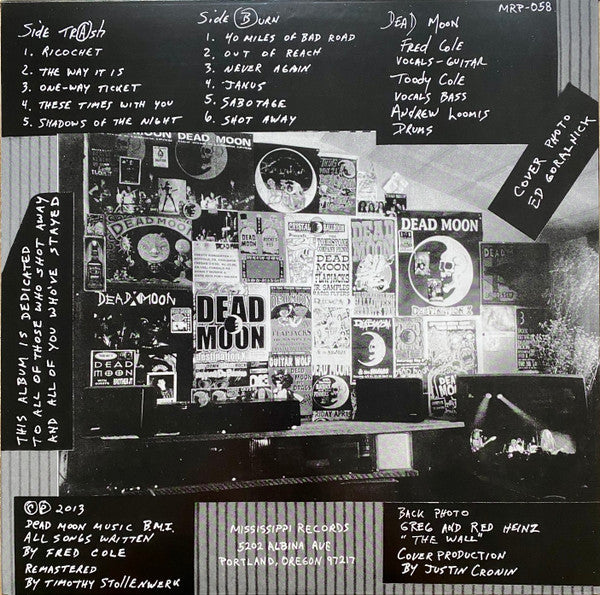 Side TRASH
1. RICOCHET
2. THE WAY IT IS
3. ONE-WAY TICKET
4. THESE TIMES WITH YOU
5. SHADOWS OF THE NIGHT
Side BURN
1. 40 MILES OF BAD ROAD
2. OUT OF REACH
3. NEVER AGAIN
4. JANUS
5. SABOTAGE
6. SHOT AWAY
DEAD MOON
FRED COLE
VOCALS-GUITAR
TOODY COLE
VOCALS BASS
ANDREW LOOMIS
DRUMS
MRP-058
COVER PHOTO
ED GORALNICK
THIS ALBUM IS DEDICATED
TO ALL OF THOSE WHO SHOT AWAY
AND ALL OF YOU WHO'VE STAYED
DEAD MOON
DEAD MOON
DEAD MOON
DEAD MOON
DEAD MOON
DEAD
MOON
DEAD
MOON
FLAPJACKS
JR. SAMPLES
DEAD
MOON
Destination X
FLAPJACKS
GUITAR WOLF
DEAD
MOON
DEAD MOON
© ℗ 2013
DEAD MOON MUSIC B.M.I.
ALL SONGS WRITTEN
BY FRED COLE
REMASTERED
BY TIMOTHY STOLLENWERK
MISSISSIPPI RECORDS
5202 ALBINA AVE
PORTLAND, OREGON 97217
BACK PHOTO
GREG AND RED HEINZ
"THE WALL"
COVER PRODUCTION
BY JUSTIN CRONIN